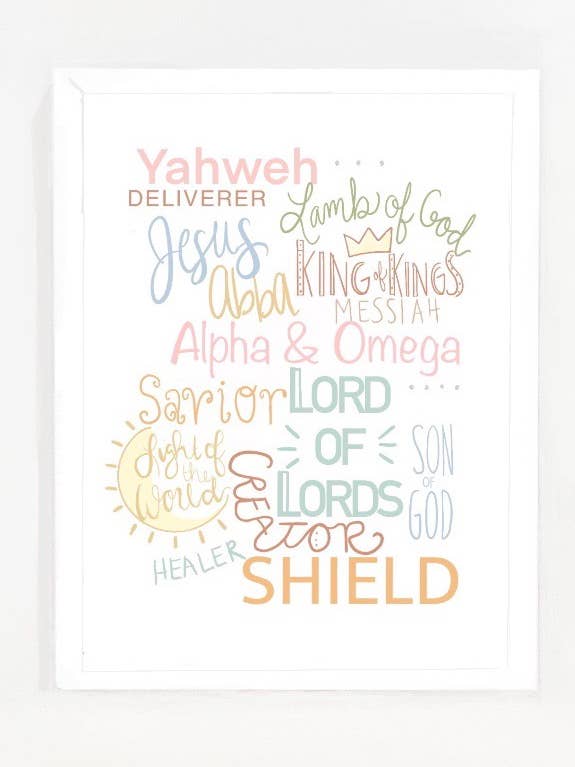 Yahweh
DELIVERER
Lamb of God
Jesus
KING of KINGS
Abba
MESSIAH
Alpha & Omega
Savior
LORD
OF
LORDS
Light of
the
World
SON
OF
GOD
CREATOR
HEALER
SHIELD